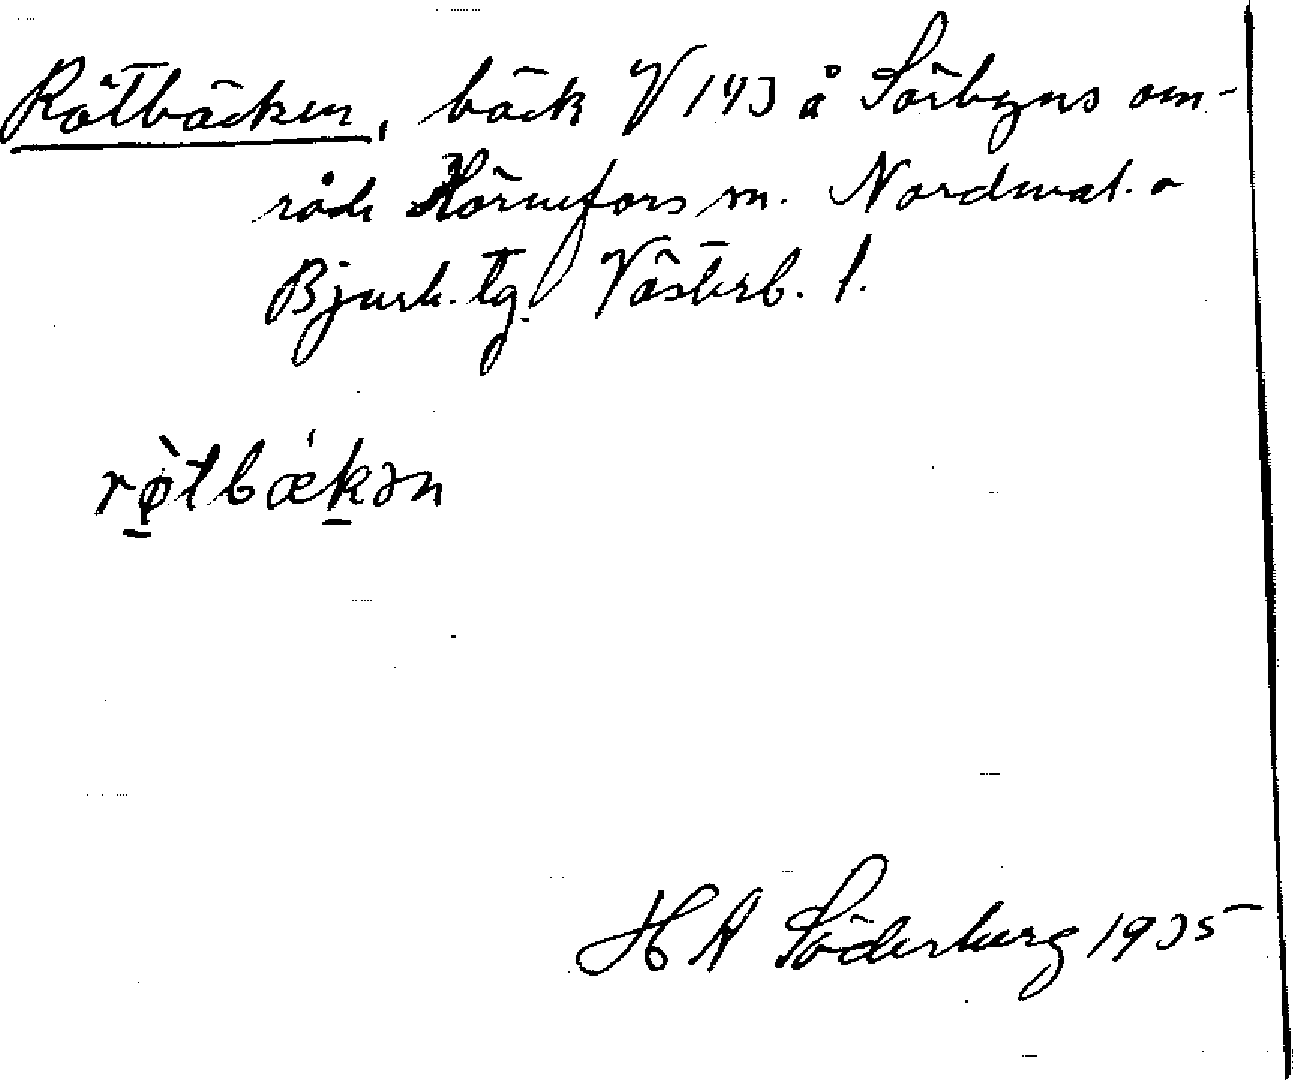 Rötbäcken, bäck V 143 å Sörbyns om-
råde Hörnefors sn. Nordmal. o
Bjurh. tg. Västerb. l.
rø̀tbækən
H A Söderberg 1935